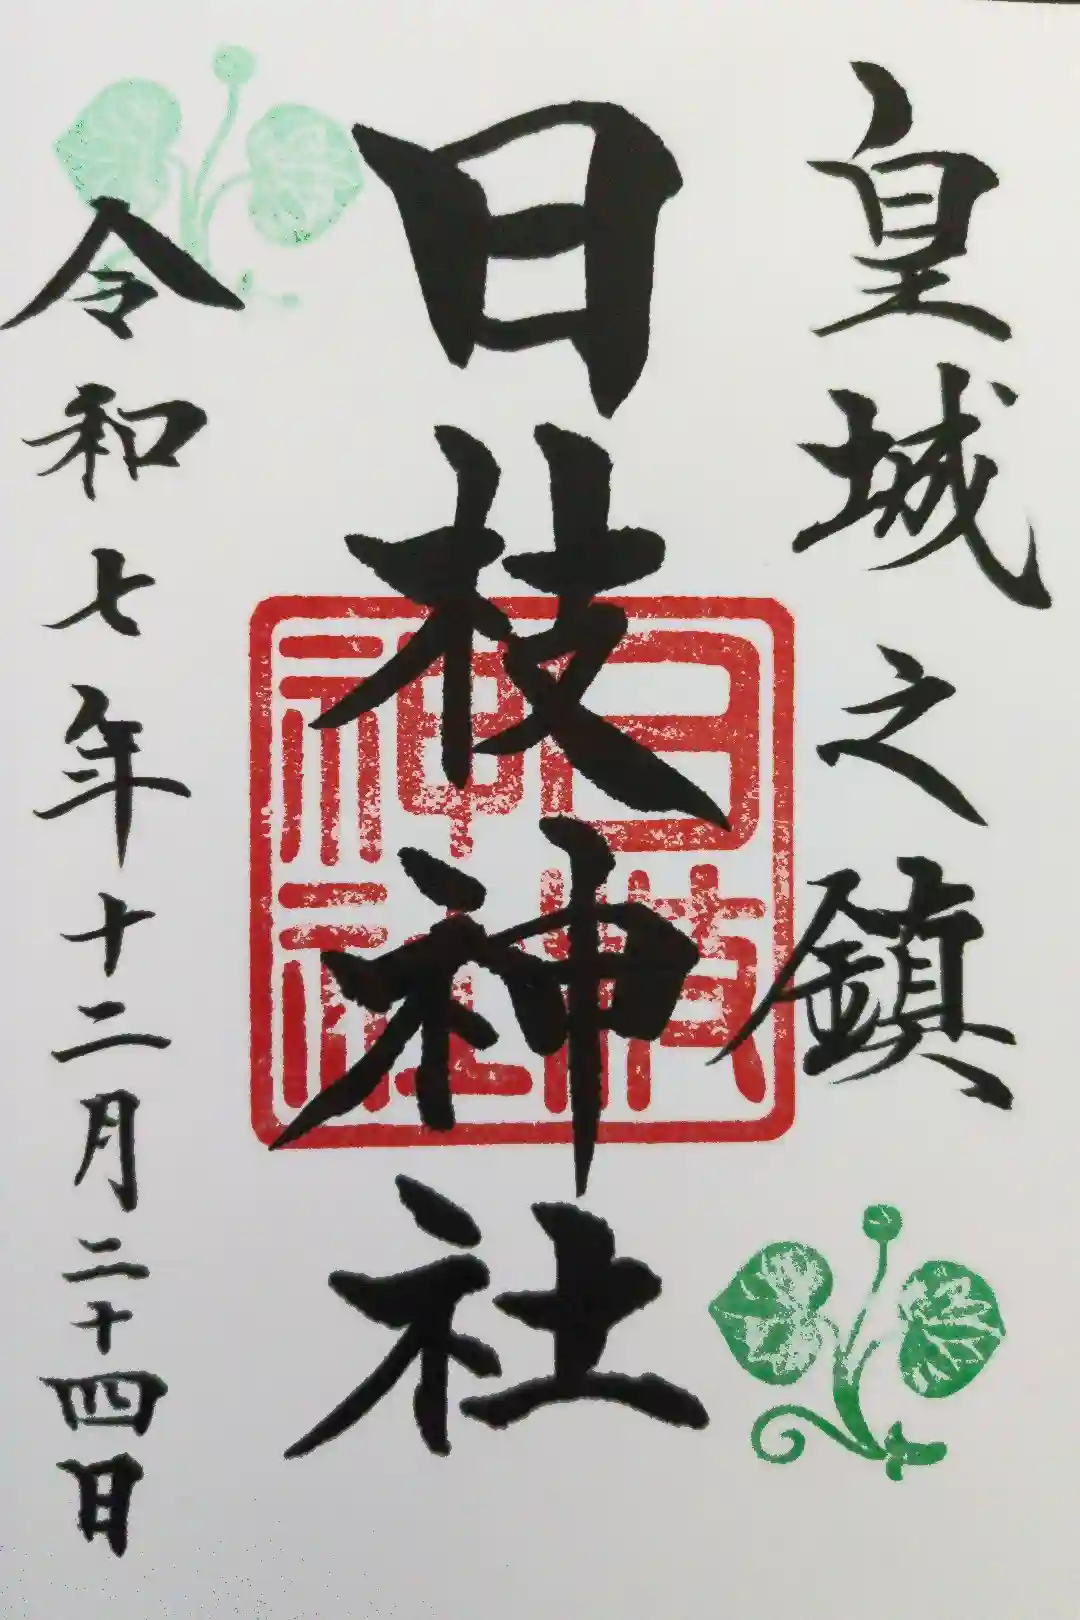 皇城之鎮
日枝神社
日枝
神社
令和七年十二月二十四日